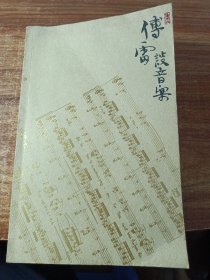 傅雷
談音樂